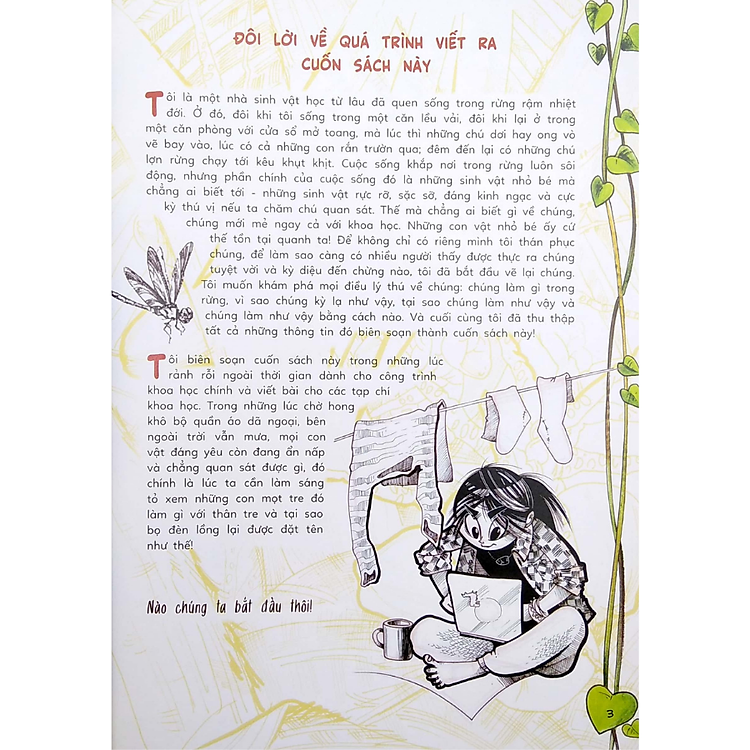 ĐÔI LỜI VỀ QUÁ TRÌNH VIẾT RA
CUỐN SÁCH NÀY
Tôi là một nhà sinh vật học từ lâu đã quen sống trong rừng rậm nhiệt
đới. Ở đó, đôi khi tôi sống trong một căn lều vải, đôi khi lại ở trong
một căn phòng với cửa sổ mở toang, mà lúc thì những chú dơi hay ong vò
vẽ bay vào, lúc có cả những con rắn trườn qua; đêm đến lại có những chú
lợn rừng chạy tới kêu khụt khịt. Cuộc sống khắp nơi trong rừng luôn sôi
động, nhưng phần chính của cuộc sống đó là những sinh vật nhỏ bé mà
chẳng ai biết tới - những sinh vật rực rỡ, sặc sỡ, đáng kinh ngạc và cực
kỳ thú vị nếu ta chăm chú quan sát. Thế mà chẳng ai biết gì về chúng,
chúng mới mẻ ngay cả với khoa học. Những con vật nhỏ bé ấy cứ
thế tồn tại quanh ta! Để không chỉ có riêng mình tôi thán phục
chúng, để làm sao càng có nhiều người thấy được thực ra chúng
tuyệt vời và kỳ diệu đến chừng nào, tôi đã bắt đầu vẽ lại chúng.
Tôi muốn khám phá mọi điều lý thú về chúng: chúng làm gì trong
rừng, vì sao chúng kỳ lạ như vậy, tại sao chúng làm như vậy và
chúng làm như vậy bằng cách nào. Và cuối cùng tôi đã thu thập
tất cả những thông tin đó biên soạn thành cuốn sách này!
Tôi biên soạn cuốn sách này trong những lúc
rảnh rỗi ngoài thời gian dành cho công trình
khoa học chính và viết bài cho các tạp chí
khoa học. Trong những lúc chờ hong
khô bộ quần áo dã ngoại, bên
ngoài trời vẫn mưa, mọi con
vật đáng yêu còn đang ẩn nấp
và chẳng quan sát được gì, đó
chính là lúc ta cần làm sáng
tỏ xem những con mọt tre đó
làm gì với thân tre và tại sao
bọ đèn lồng lại được đặt tên
như thế!
Nào chúng ta bắt đầu thôi!
3